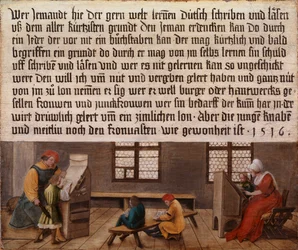 Wer Jemandt hie der gern welt lernen Dütsch schriben und läsen
uß dem aller kürtzisten grundt den Jeman erdencken kan Do durch
ein Jeder der vor nit ein büchstaben kan der mag kürtzlich und bald
begriffen ein grundt do durch er mag von jm selbs lernen sin schuld
uff schribe und läsen und wer es nit gelernen kan so ungeschickt
were Den will ich um nüt und vergeben gelert haben und gantz nüt
von jm zü lon nemen er sig wer er well burger oder hantwercks ge-
sellen frouwen und junckfrouwen wer sin bedarff der kum har jn der
wirt drüwlich gelert um ein zimlichen lon · Aber die junge knabe
und meitlin noch den fronuasten wie gewonheit ist · 1516 ·